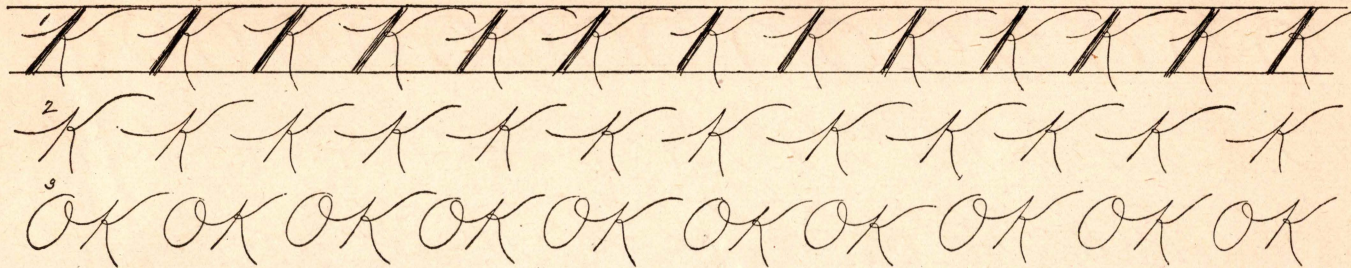 1 K K K K K K K K K K K K K
2 K K K K K K K K K K K K
3 OK OK OK OK OK OK OK OK OK OK